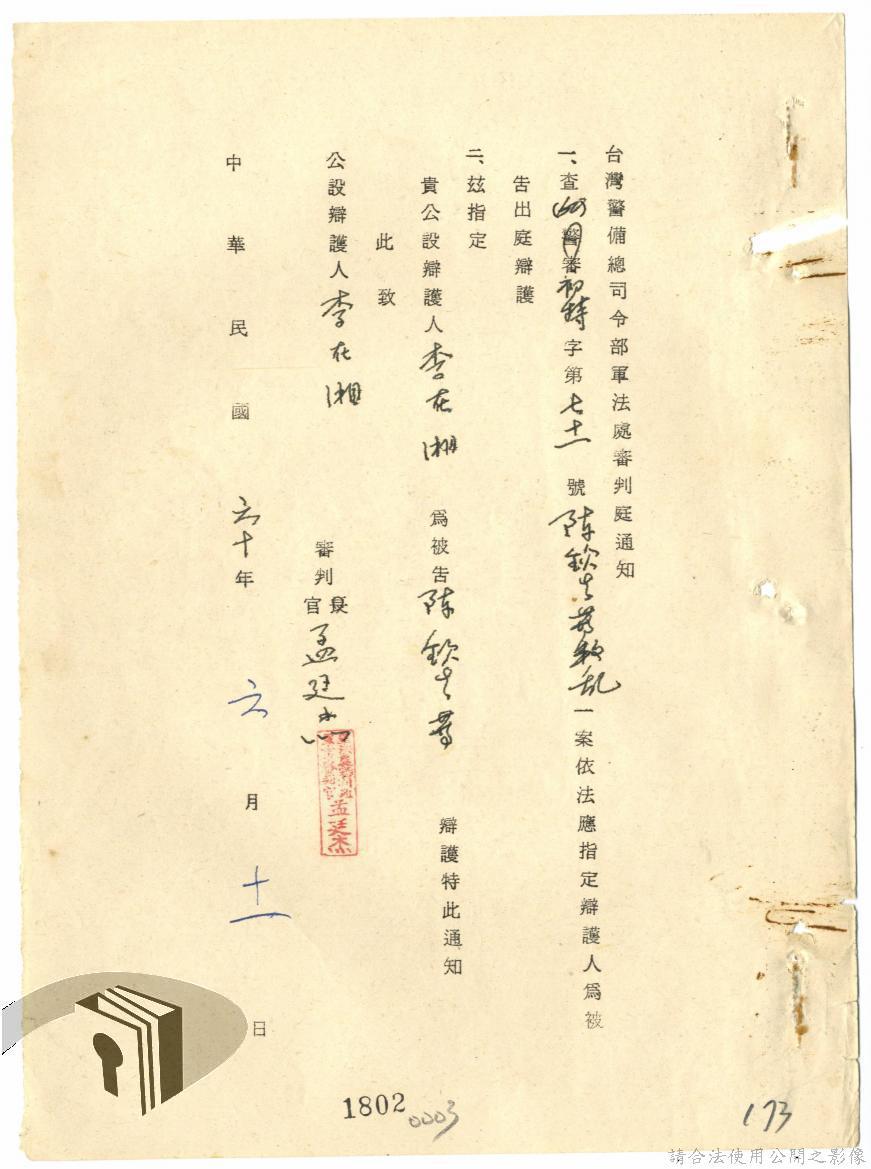 台灣警備總司令部軍法處審判庭通知
一、查警審初特字第七十一號陳欽生等叛乱一案依法應指定辯護人為被
告出庭辯護
二、茲指定
貴公設辯護人李在湘為被告陳欽生等辯護特此通知
此致
公設辯護人李在湘
審判長官孟廷杰
孟廷杰
中華民國六十年六月十一日
1802
0003
173
請合法使用公開之影像